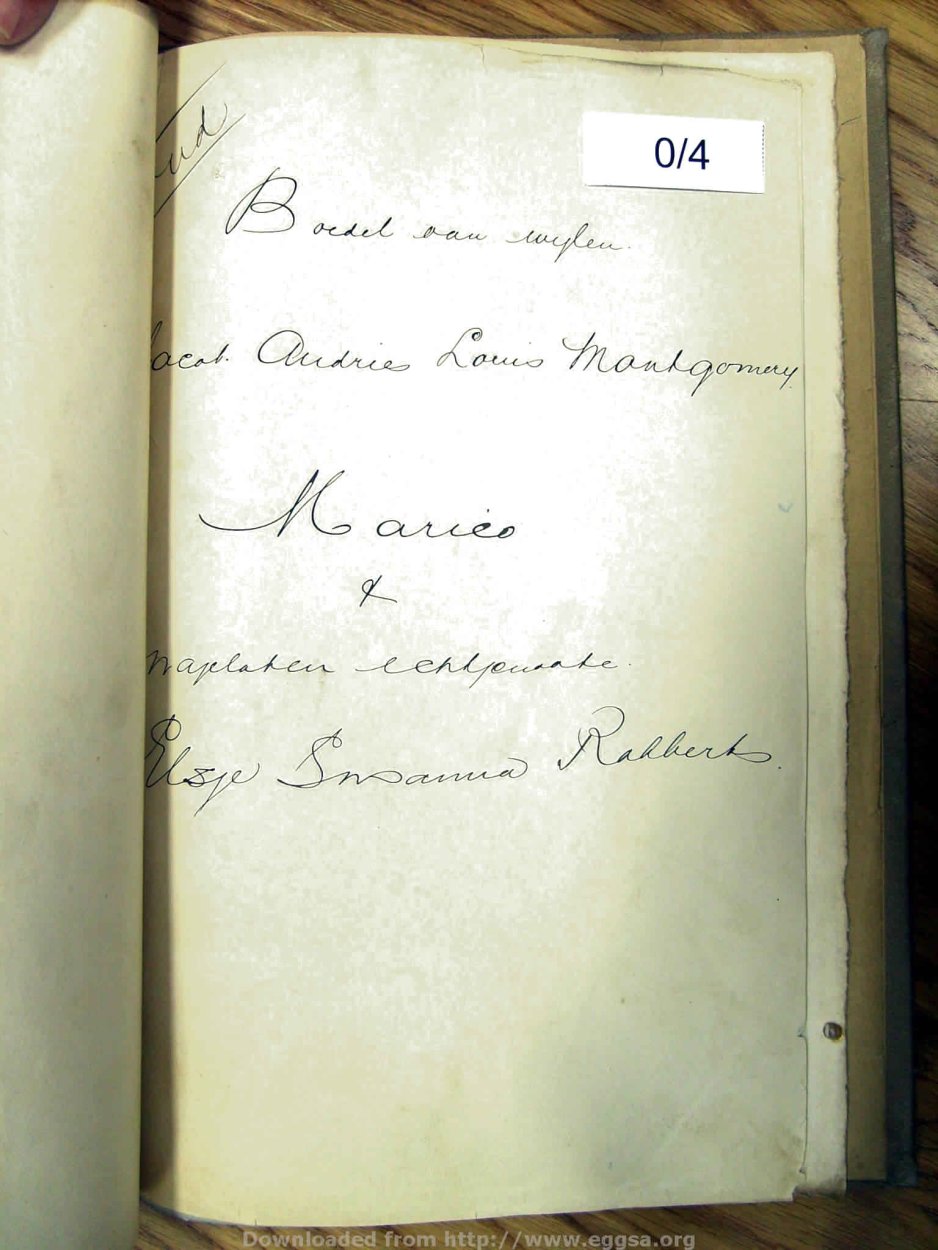 0/4
Boedel van wijlen.
Jacob. Andries Louis Montgomery
Marico
&
nagelaten echtgenoote.
Elsje Susanna Robberts.
Downloaded from http://www.eggsa.org